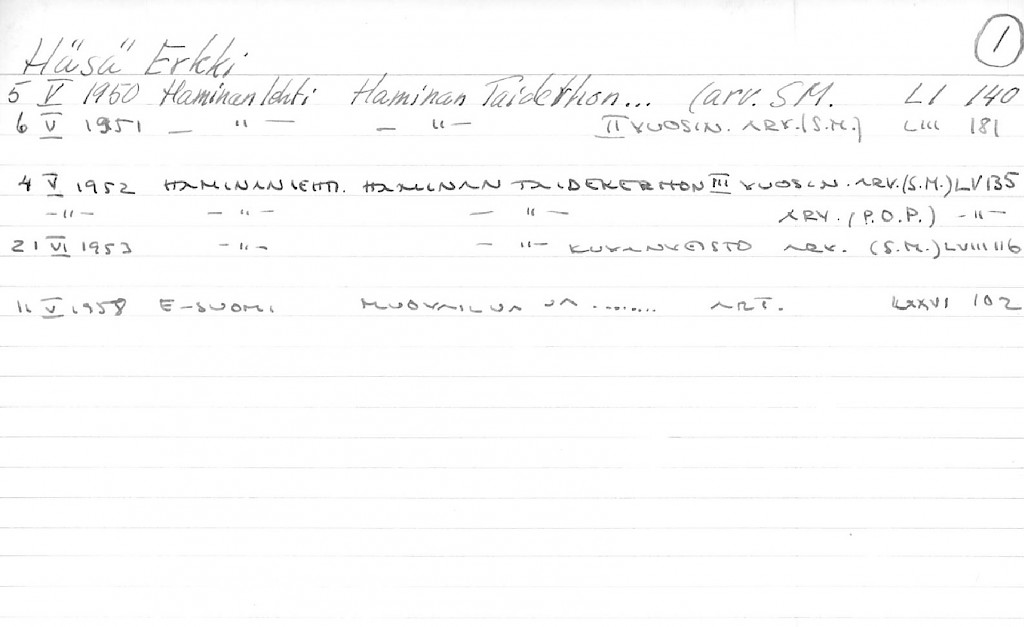 1
Häsä Erkki
5 V 1950 Haminan lehti Haminan Taiderhon... (arv. SM. LI 140
6 V 1951 — " — — " — II VUOSIN. ARV. (S.M.) LIII 181
4 V 1952 HAMINAN LEHTI. HAMINAN TAIDEKERHON III VUOSIN. ARV. (S.M.) LV 135
— " — — " — — " — ARV. (P.O.P.) — " —
21 VI 1953 — " — — " — KUVANVEISTO ARV. (S.M.) LVIII 116
11 V 1958 E-SUOMI MUOVAILUA JA ........ ART. LXXVI 102